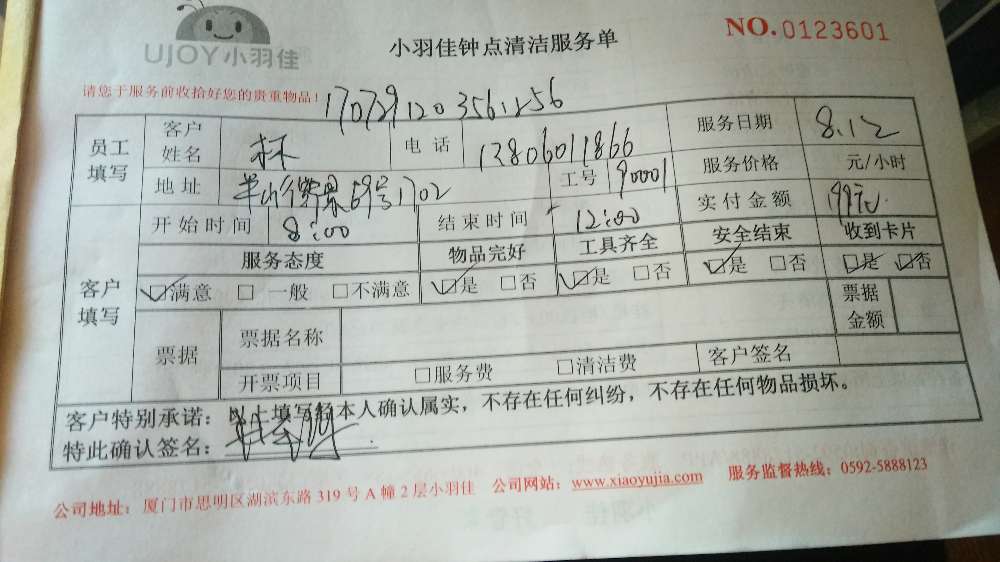 UJOY小羽佳
小羽佳钟点清洁服务单
NO.0123601
请您于服务前收拾好您的贵重物品!
员工填写 客户姓名 林 电话 13806011866 服务日期 8.12
地址 59号1702 工号 90001 服务价格 元/小时
开始时间 8:00 结束时间 12:00 实付金额 199元
客户填写 服务态度 物品完好 工具齐全 安全结束 收到卡片
☑满意 □一般 □不满意 ☑是 □否 ☑是 □否 ☑是 □否 ☑是 ☑否
票据 票据名称 票据金额
开票项目 □服务费 □清洁费 客户签名
客户特别承诺:以上填写经本人确认属实,不存在任何纠纷,不存在任何物品损坏。
特此确认签名:
公司地址:厦门市思明区湖滨东路 319 号 A 幢 2 层小羽佳 公司网站:www.xiaoyujia.com 服务监督热线:0592-5888123